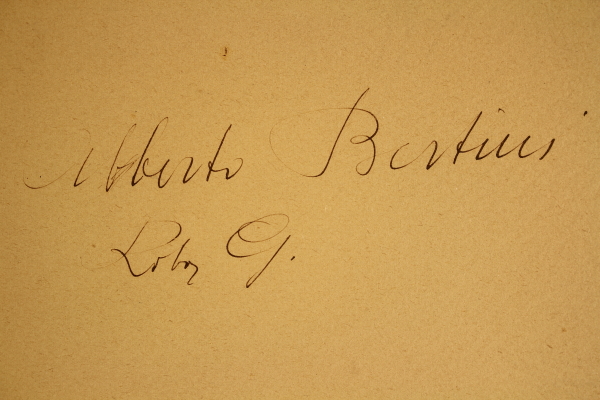 Alberto Bertini
Loboz G.